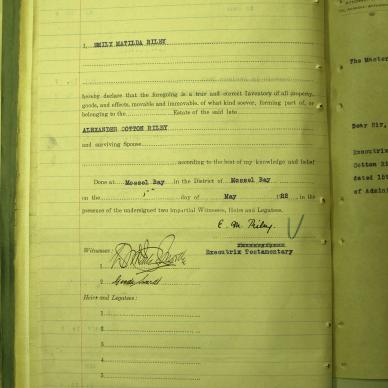 I, EMILY MATILDA RILEY
hereby declare that the foregoing is a true and correct Inventory of all property,
goods, and effects, movable and immovable, of what kind soever, forming part of, or
belonging to the Estate of the said late
ALEXANDER COTTON RILEY
and surviving Spouse
according to the best of my knowledge and belief
Done at Mossel Bay in the District of Mossel Bay
on the day of May 1922, in the
presence of the undersigned two impartial Witnesses, Heirs and Legatees.
E. M. Riley.
Executrix Testamentary
Witnesses:
1
2
Heirs and Legatees:
1
2
3
4
5
The Master
Dear Sir,
Executrix
Cotton Ri
dated 18t
of Admin